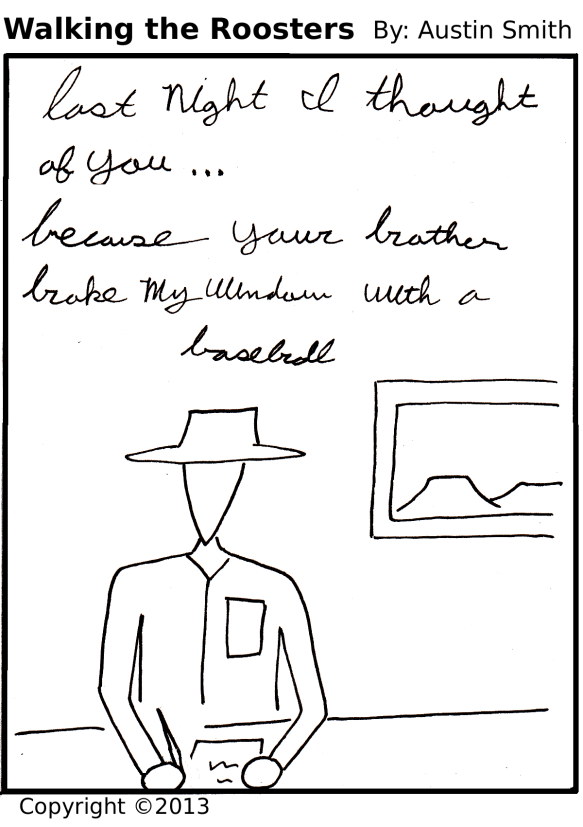 Walking the Roosters By: Austin Smith
last Night I thought
of you ...
because your brother
broke My window with a
baseball
Copyright ©2013